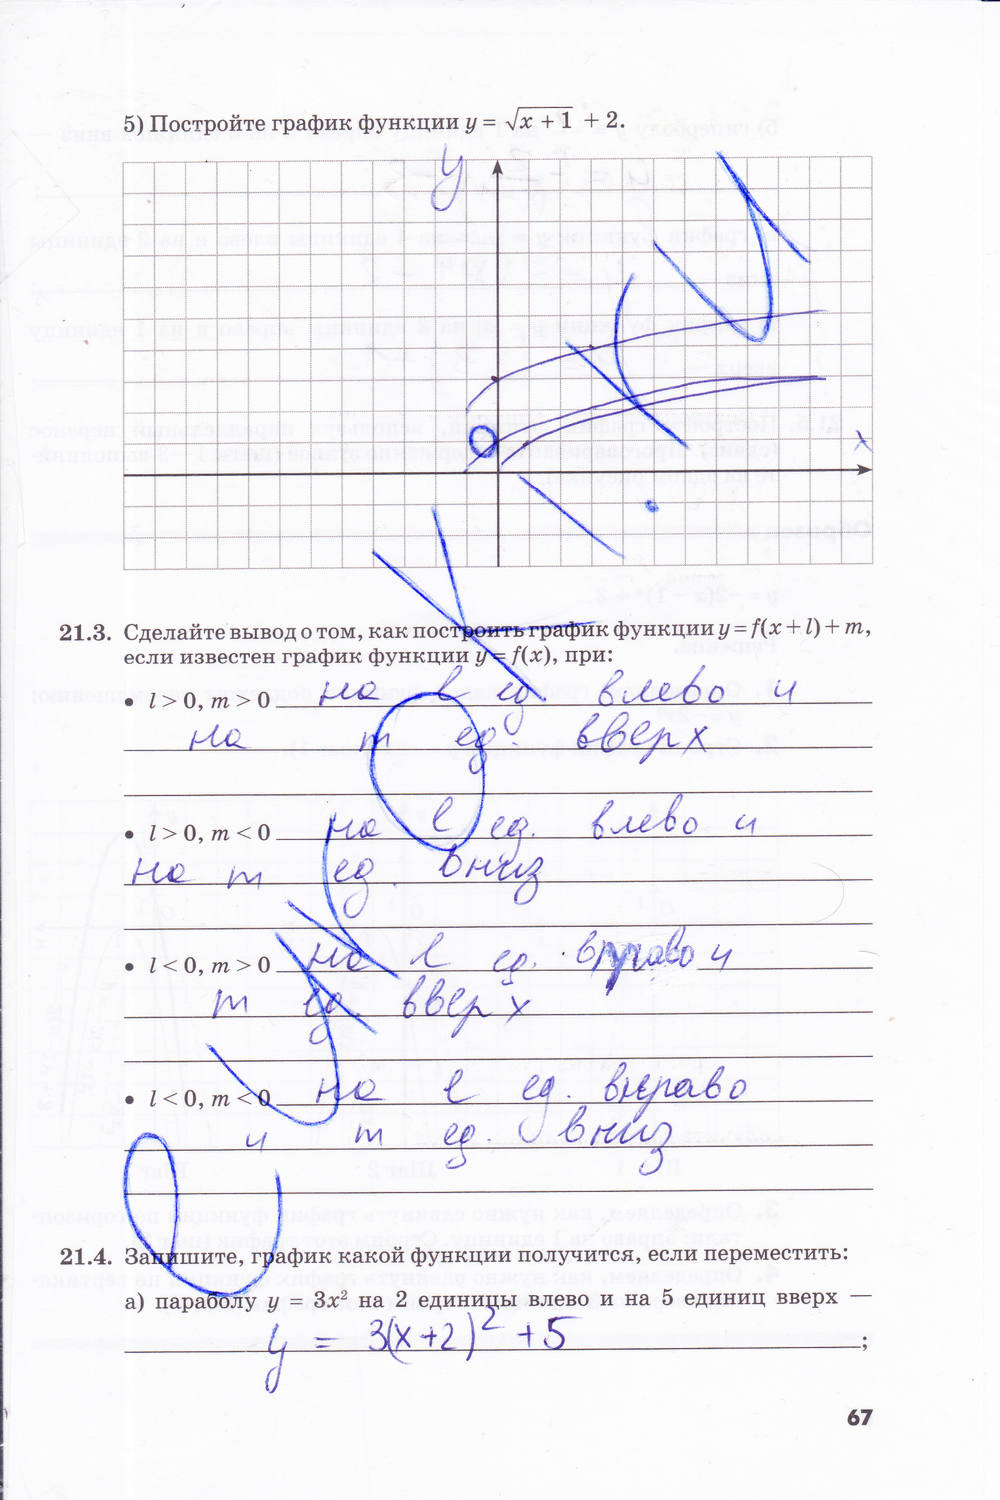 5) Постройте график функции y = √(x + 1) + 2.
y
x
21.3. Сделайте вывод о том, как построить график функции y = f(x + l) + m,
если известен график функции y = f(x), при:
• l > 0, m > 0 на l ед влево и
на m ед. вверх
• l > 0, m < 0 на l ед. влево и
на m ед. вниз
• l < 0, m > 0 на l ед. вправо и
m ед. вверх
• l < 0, m < 0 на l ед. вправо
и m ед. вниз
21.4. Запишите, график какой функции получится, если переместить:
а) параболу y = 3x² на 2 единицы влево и на 5 единиц вверх —
y = 3(x+2)² + 5 ;
67